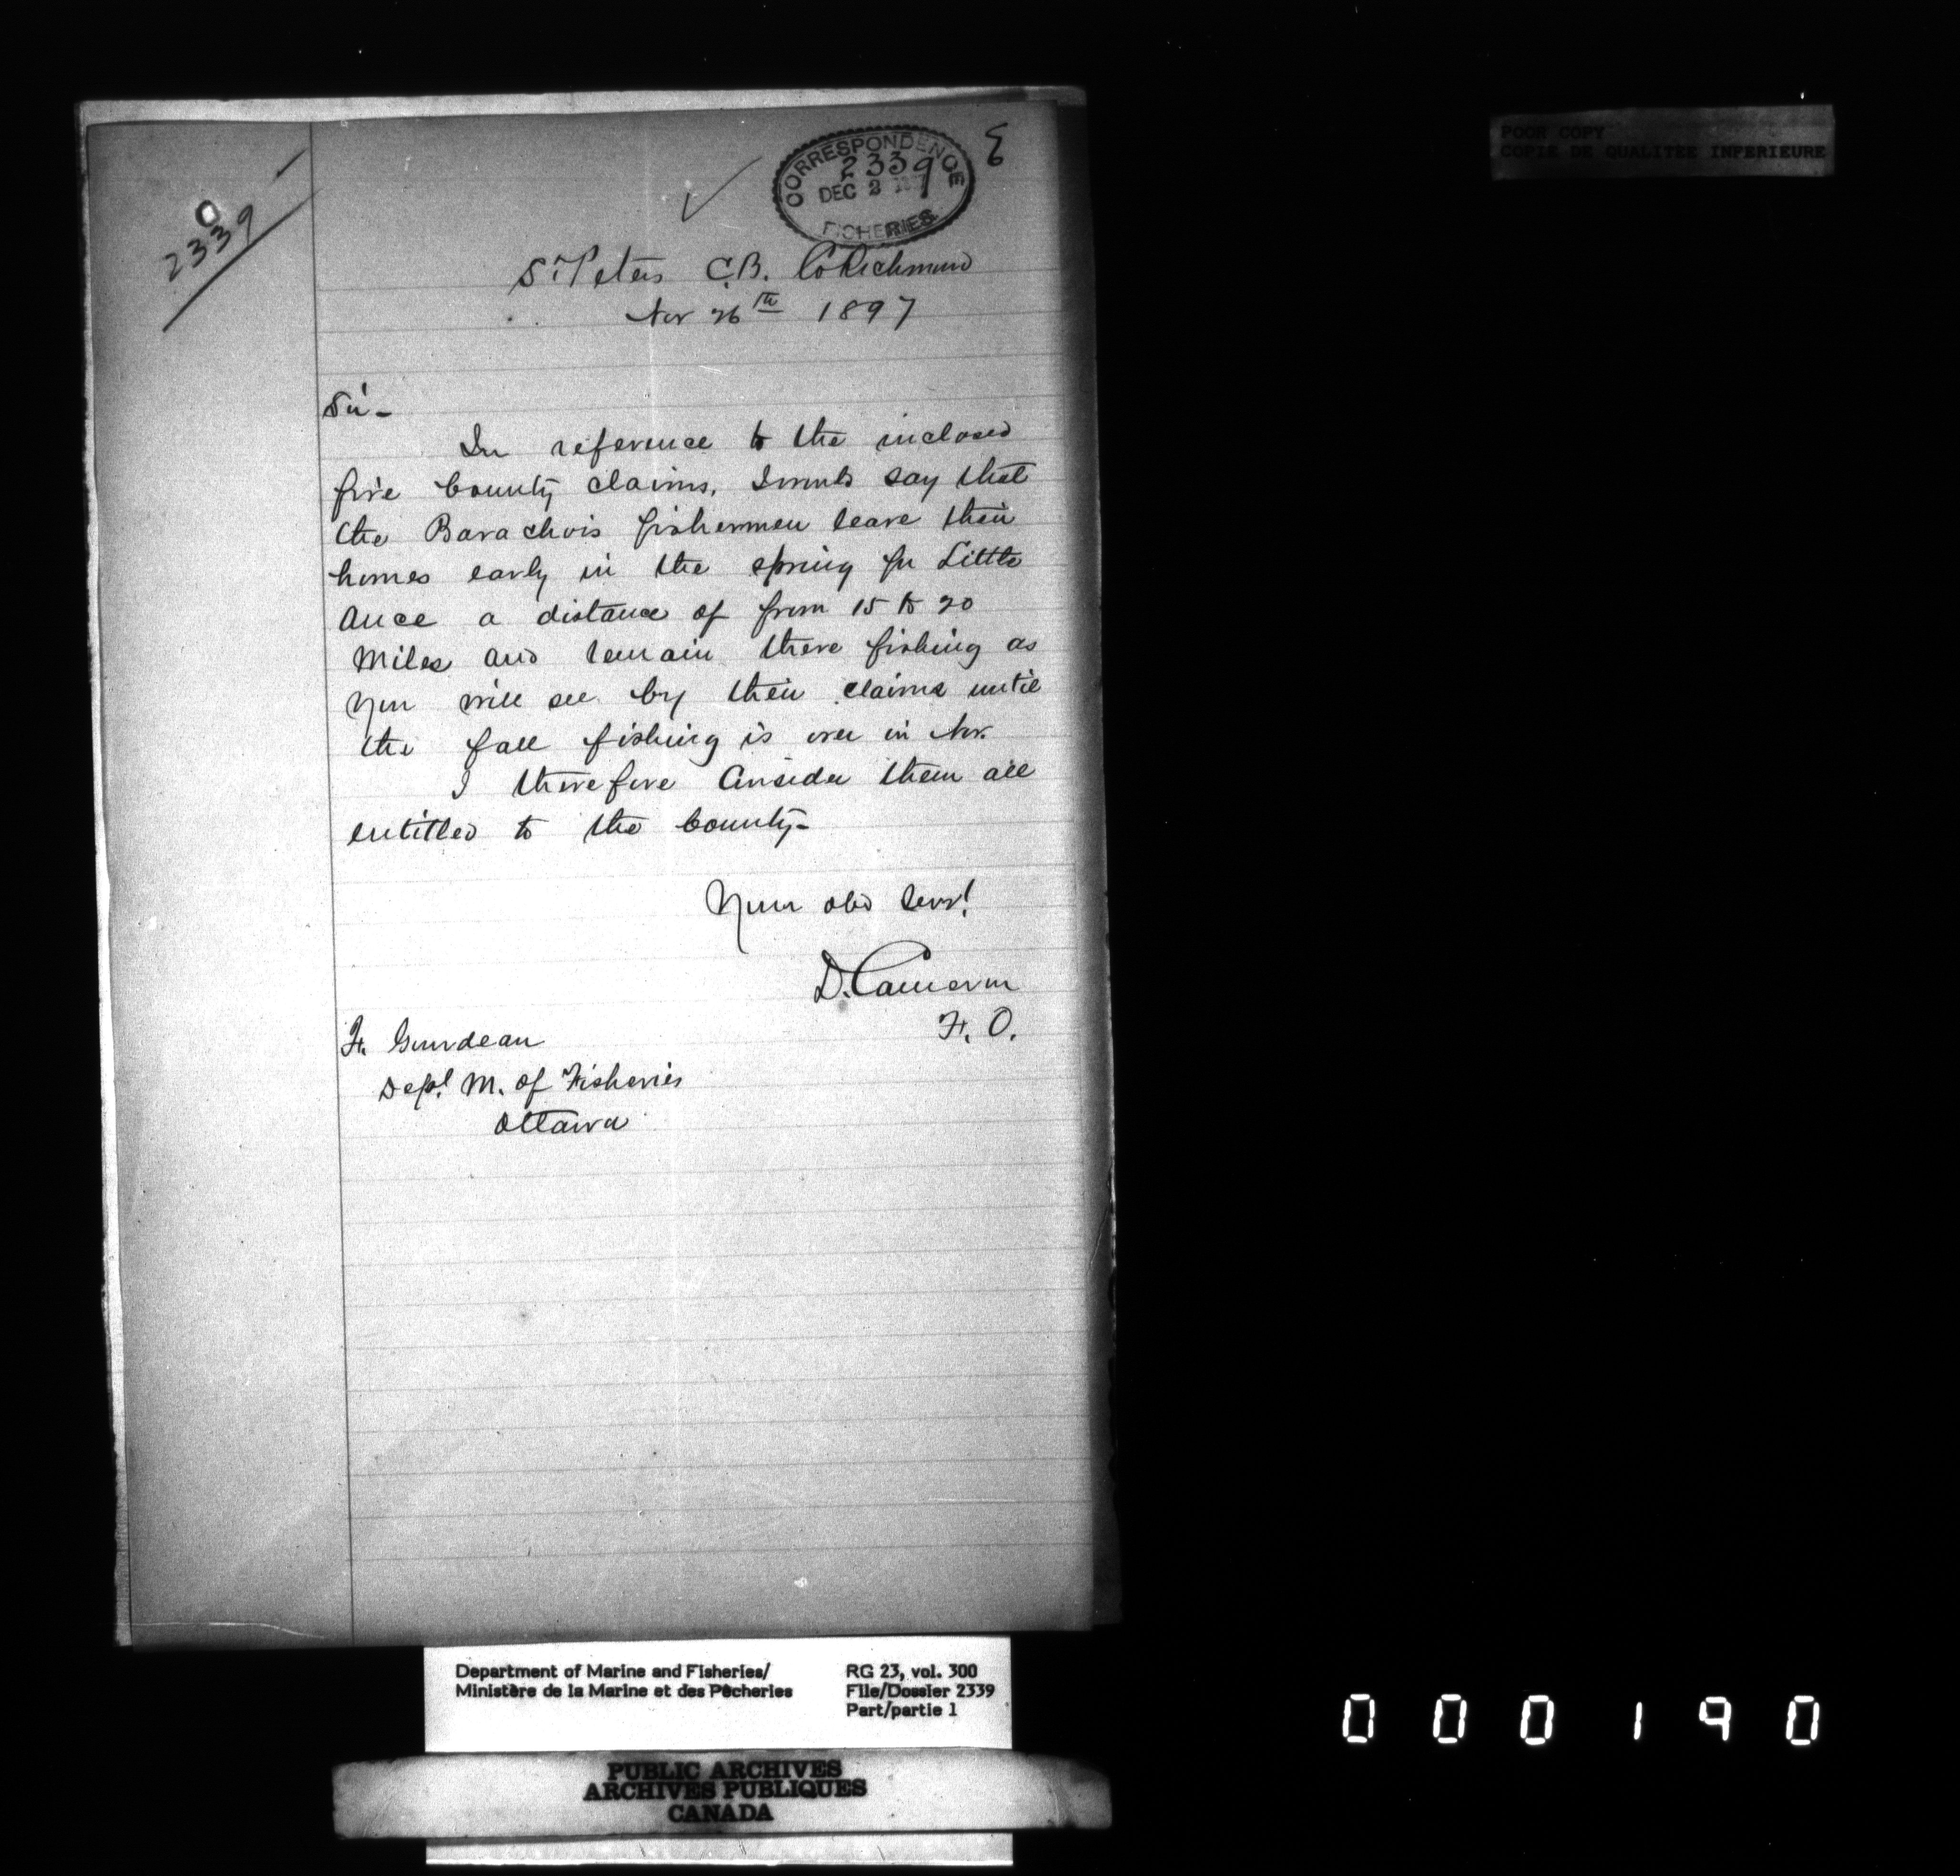 POOR COPY
COPIE DE QUALITEE INFERIEURE
CORRESPONDENCE
2339
DEC 2 1897
FISHERIES
2339
St Peters C.B. Co Richmond
Nov 26th 1897
Sir-
In reference to the inclosed
five bounty claims, I must say that
the Barachois fishermen leave their
homes early in the spring for Little
Ance a distance of from 15 to 20
Miles and remain there fishing as
you will see by their claims until
the fall fishing is over in Nov.
I therefore Consider them all
entitled to the bounty-
Your obd Servt
D. Cameron
F. O.
F. Gourdeau
Dept. M. of Fisheries
Ottawa
Department of Marine and Fisheries/
Ministère de la Marine et des Pêcheries
RG 23, vol. 300
File/Dossier 2339
Part/partie 1
PUBLIC ARCHIVES
ARCHIVES PUBLIQUES
CANADA
000190